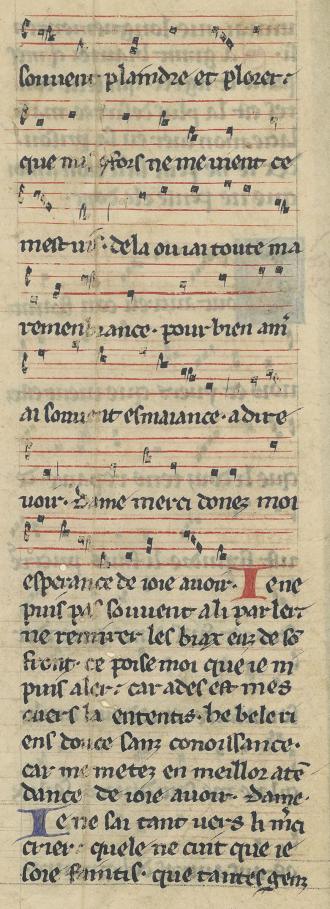 souvent plaindre et plorer.
que nus fors ne me vient ce
mest vis. de la ou iai toute ma
remenbrance. pour bien am̾
ai souvent esmaiance. a dire
voir. Dame merci donez moi
esperance de ioie avoir. Ie ne
puis pas souvent a li parler
ne remirer les biax euz de sō
front. ce poise moi que ie ni
puis aler. car ades est mes
cuers la ententis. he bele ri
ens douce sanz conoissance.
car me metez en meillor atē
dance de ioie avoir. Dame.
Ie ne sai tant vers li m̾ci
crier. quele ne cuit que ie
soie faintis. que tantes genz